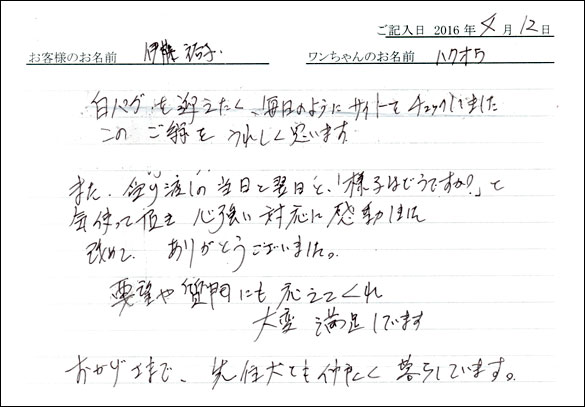 ご記入日 2016年 4月 12日
お客様のお名前 伊藤 ワンちゃんのお名前 ハクオウ
白パグを迎えたく、毎日のようにサイトをチェックしていました
このご縁をうれしく思います。
また、受け渡しの当日と翌日と、「様子はどうですか?」と
気使って頂き 心強い対応に感動しました
改めて、ありがとうございました。
要望や質問にも応えてくれ
大変 満足しています
おかげさまで、先住犬とも仲良く暮らしています。